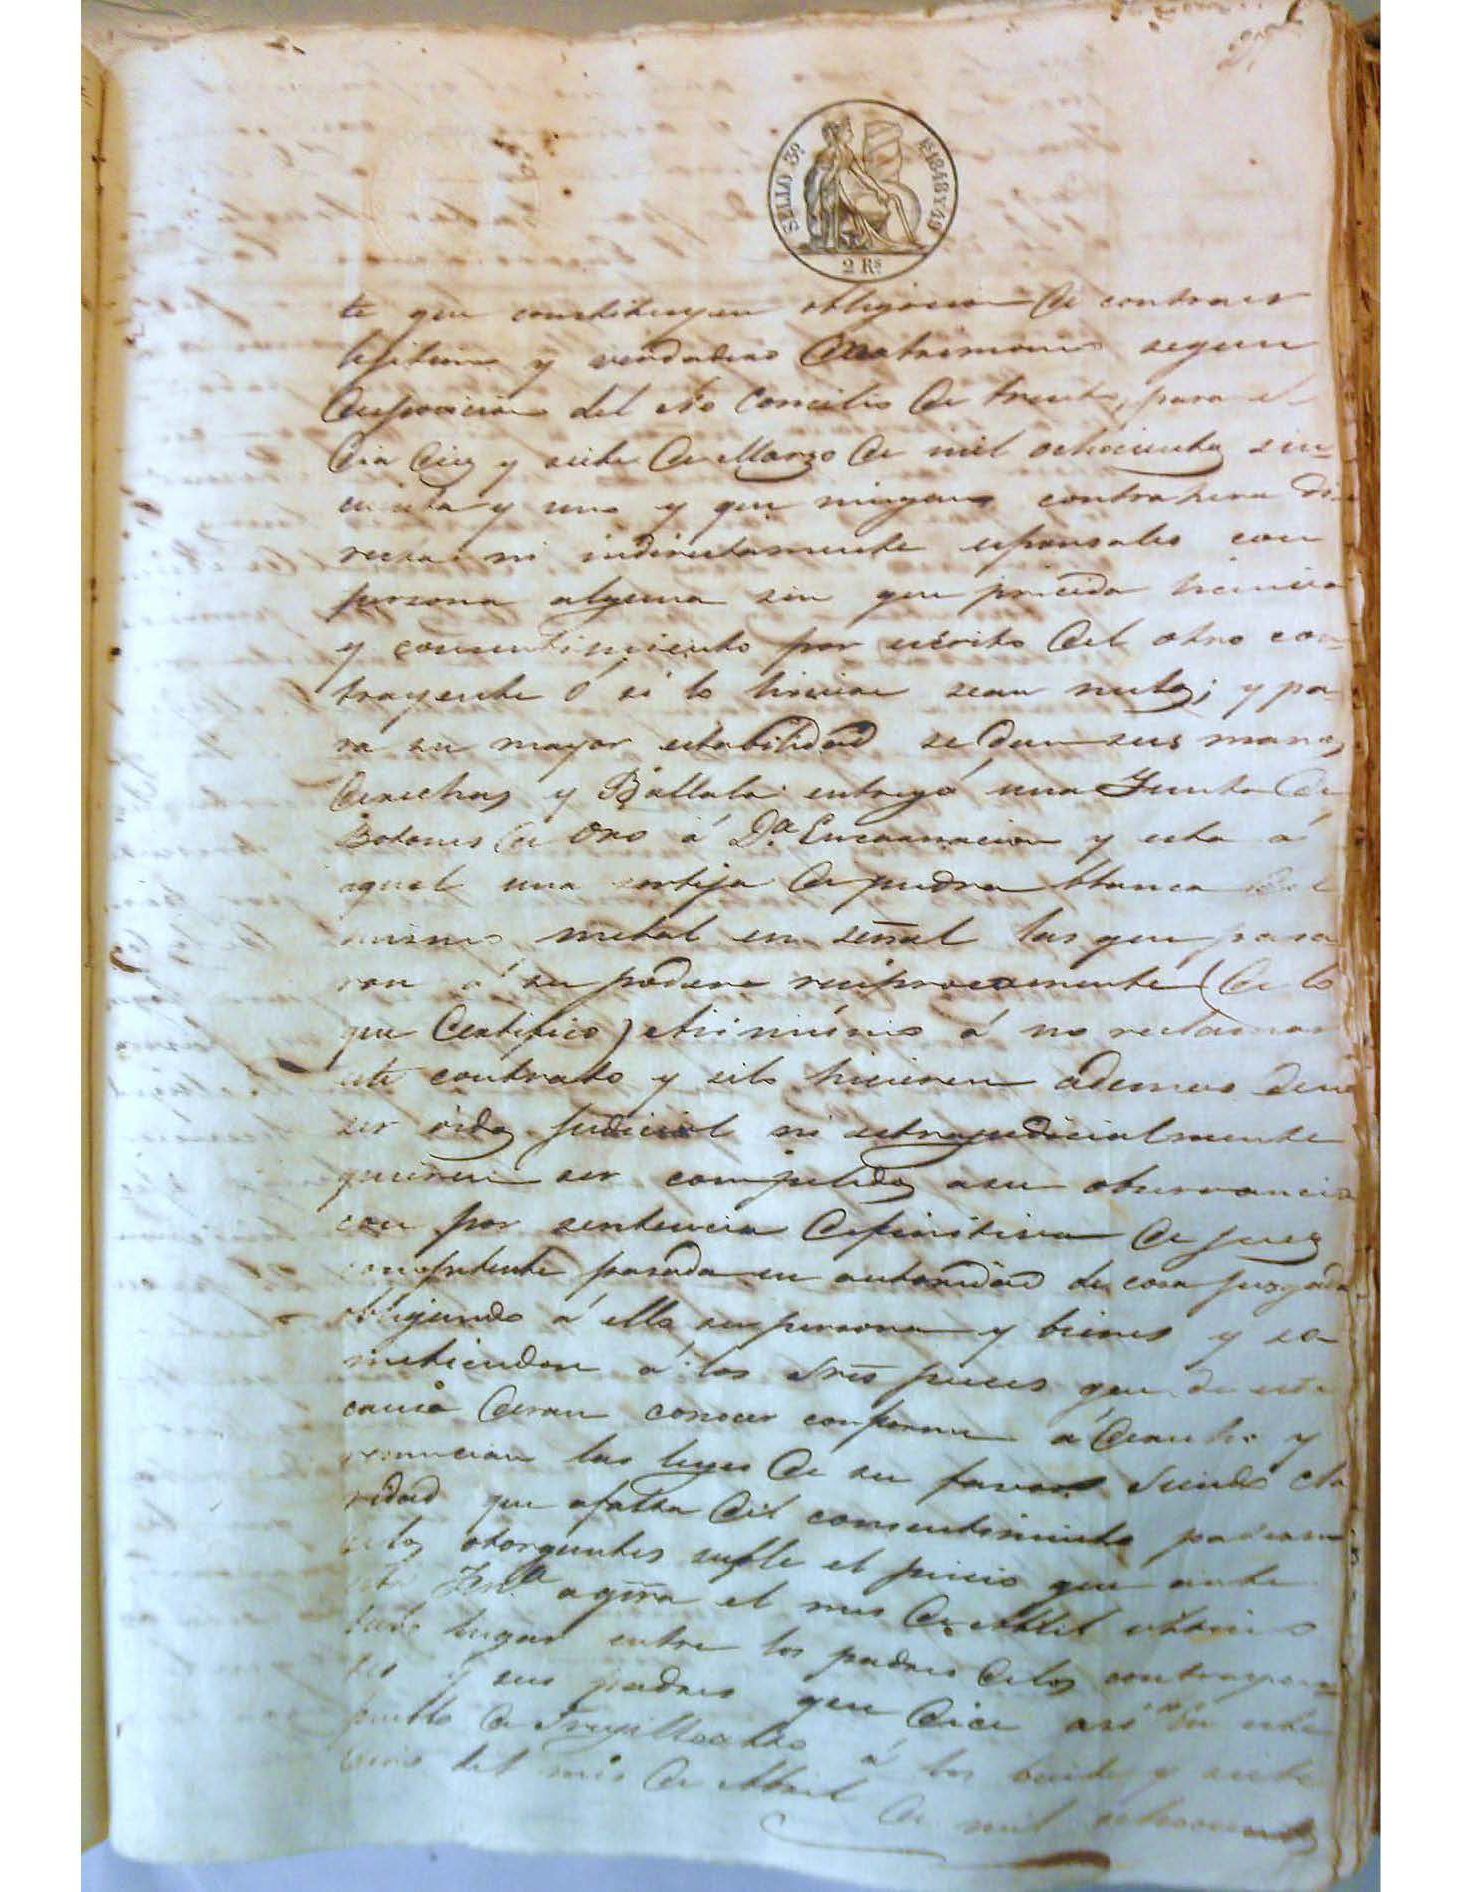 SELLO 3º Aº 1848 Y 49
2 Rs
te que constituyen obligacion de contraer
lejitimo y verdadero Matrimonio segun
disposicion del Sto Concilio de trento, para el
dia diez y siete de Marzo de mil ochocientos sin
cuenta y uno y que ninguno contrahera di
recta ni indirectamente esponsales con
persona alguna sin que preceda licencia
y consentimiento por escrito del otro con
trayente ó si lo hiciere sean nulos; y pa
ra su mayor estabilidad se dan sus manos
derechas y Ballala entregó una Junta de
Botones de Oro á Da. Encarnacion y esta á
aquel una sortija de piedra blanca del
mismo metal en señal las que pasa
ron á su poder reciprocamente (de lo
que Certifico) Asi mismo á no reclamar
este contrato y silo hicieren ademas de no
ser oidos Judicial ni extrajudicialmente
quieren ser compelidos asu observancia
con por sentencia definitiva de Juez
competente pasada en autoridad de cosa juzgada
obligando á ello su persona y bienes y so
metiendose á los Sres jueces que de esta
causa deran conocer conforme á derecho y
renuncian las leyes de su favor. Siendo cla
ridad que afalta del consentimiento
otorgantes suple el juicio que ante
el mes de Abril
tubo lugar entre los padres delos contrayen
tes y sus padres que dice asi En este
pueblo de á los veinte y siete
del mes de Abril de mil ochocientos